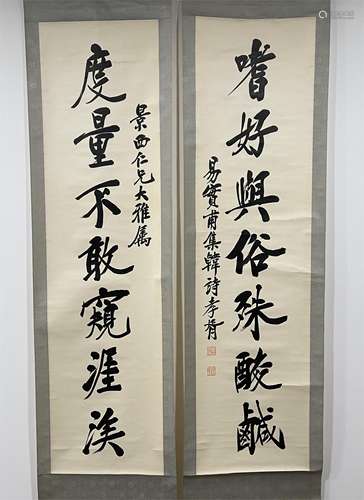 嗜好與俗殊酸鹹
易實甫集韓詩孝胥
景西仁兄大雅属
度量不敢窺涯涘